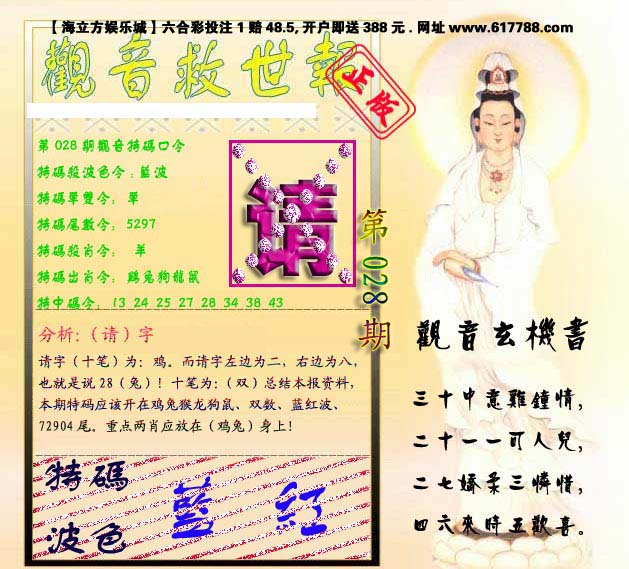 【海立方娱乐城】六合彩投注1赔48.5,开户即送388元.网址www.617788.com
觀音救世報
正版
第028期觀音特碼口令
特碼殺波色令:藍波
特碼單雙令: 單
特碼尾數令: 5297
特碼殺肖令: 羊
特碼出肖令: 鷄兔狗龍鼠
特中碼令: 13 24 25 27 28 34 38 43
请
第028期
分析:(请)字
请字(十笔)为:鸡。而请字左边为二,右边为八,
也就是说28(兔)!十笔为:(双)总结本报资料,
本期特码应该开在鸡兔猴龙狗鼠、双数、蓝红波、
72904尾。重点两肖应放在(鸡兔)身上!
特碼
波色
藍 红
觀音玄機書
三十中意難鐘情,
二十一一可人兒,
二七嬌柔三憐惜,
四六來時五歡喜。